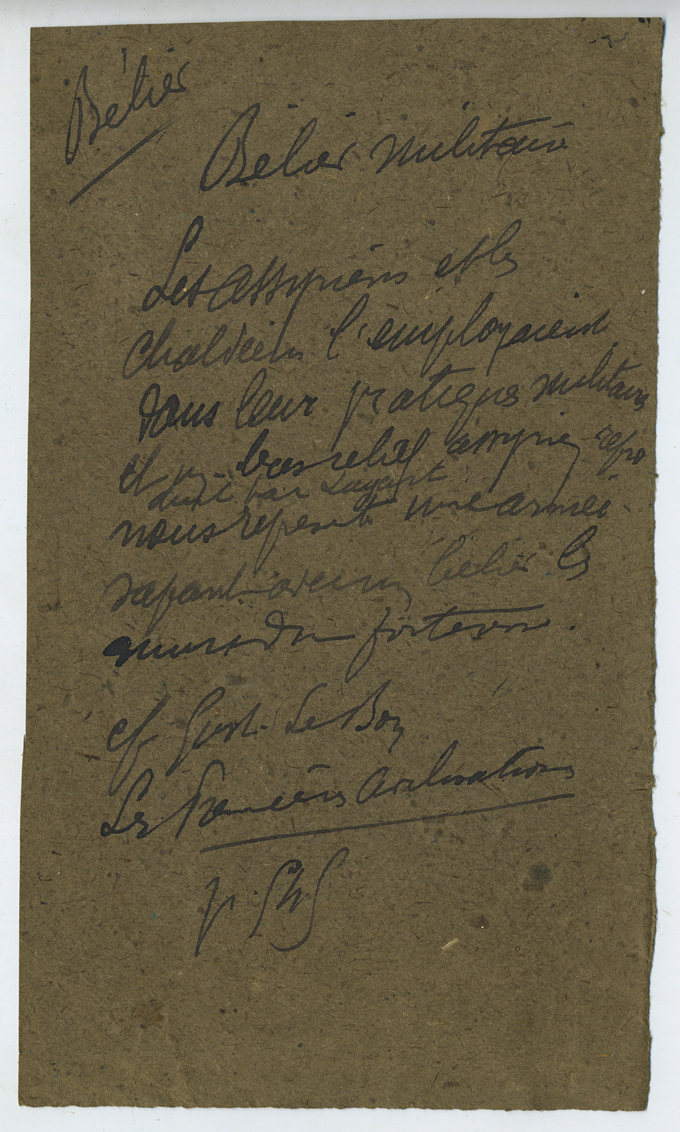 Bélier
Bélier militaire
Les assyriens et les
chaldéens l'employaient
dans leur pratique militaire
et un bas relief assyrien repro
duit par Layart
nous représente une armée
sapant avec un bélier les
murs d'une forteresse.
cf Gust. Le Bon
Les Premières civilisations
p.